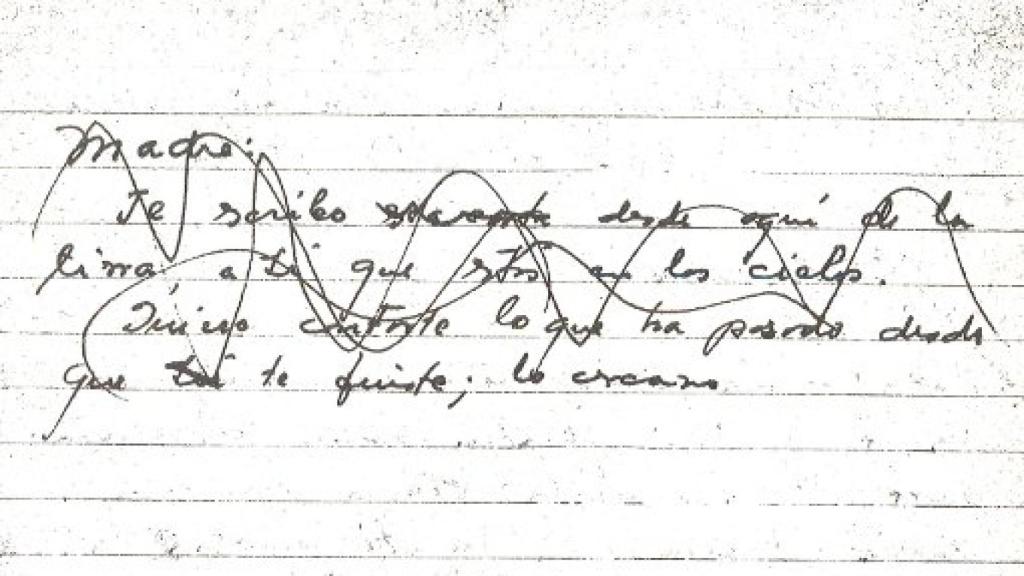 Madre:
Te escribo desde aquí de la
tierra a ti que estás en los cielos.
Quiero contarte lo que ha pasado desde
que te fuiste; lo cercano